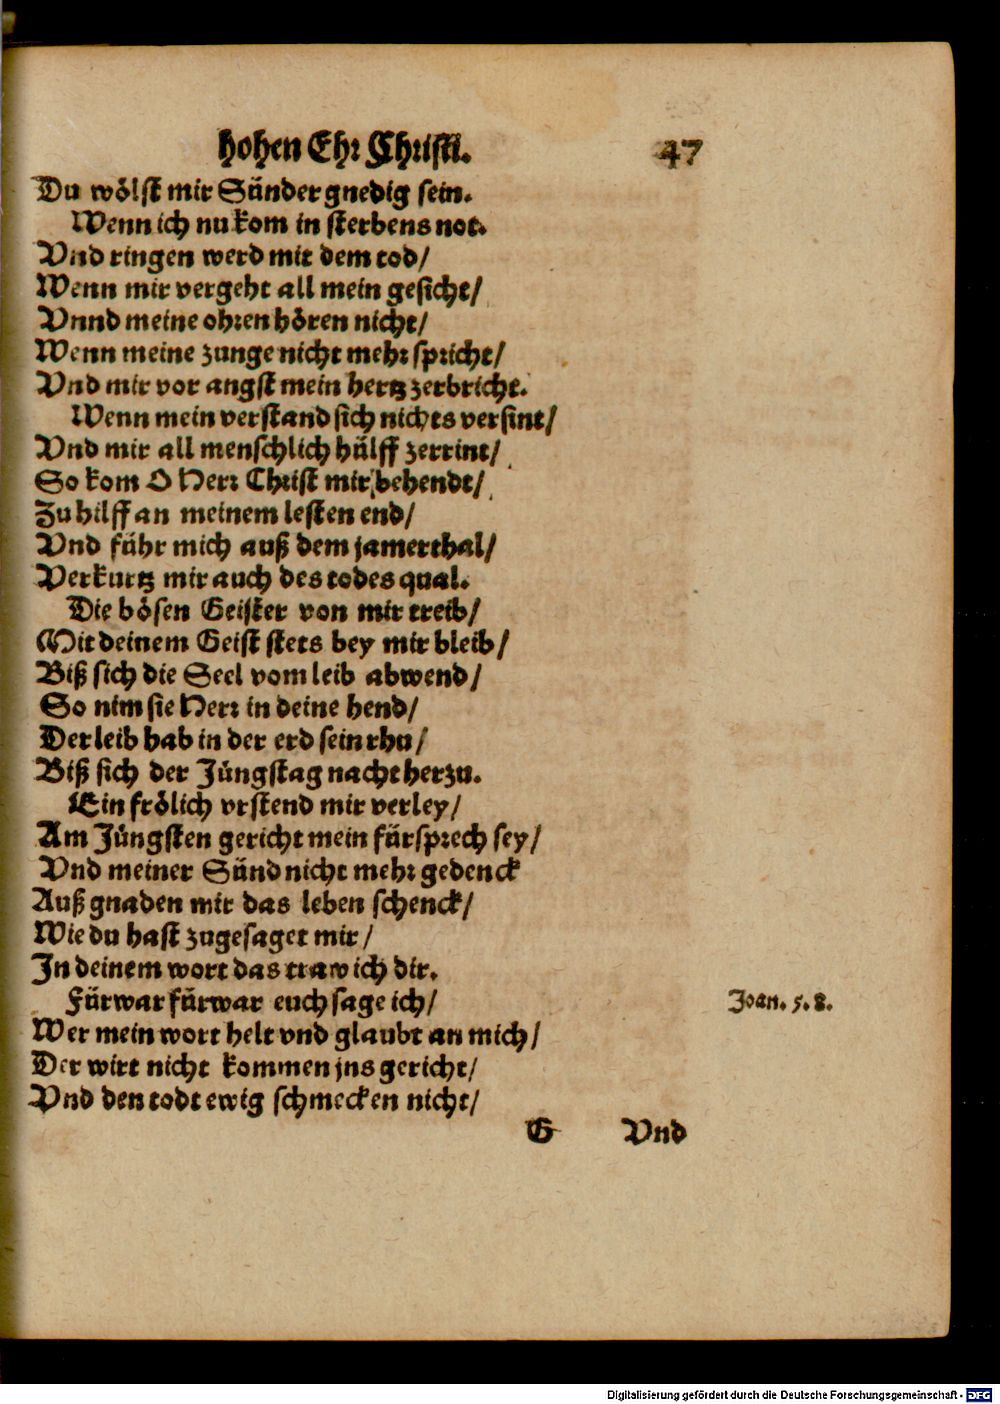 hohen Ehr Christi. 47
Du wölst mir Sünder gnedig sein.
Wenn ich nu kom in sterbens not.
Vnd ringen werd mit dem tod/
Wenn mir vergeht all mein gesicht/
Vnnd meine ohren hören nicht/
Wenn meine zunge nicht mehr spricht/
Vnd mir vor angst mein hertz zerbricht.
Wenn mein verstand sich nichts versint/
Vnd mir all menschlich hülff zerrint/
So kom O Herr Christ mir behendt/
Zu hilff an meinem lesten end/
Vnd führ mich auß dem jamerthal/
Verkurtz mir auch des todes qual.
Die bösen Geister von mir treib/
Mit deinem Geist stets bey mir bleib/
Biß sich die Seel vom leib abwend/
So nim sie Herr in deine hend/
Der leib hab in der erd sein rhu/
Biß sich der Jüngstag nacht herzu.
Ein frölich vrstend mir verley/
Am Jüngsten gericht mein fürsprech sey/
Vnd meiner Sünd nicht mehr gedenck
Auß gnaden mir das leben schenck/
Wie du hast zugesaget mir/
In deinem wort das traw ich dir.
Fürwar fürwar euch sage ich/ Joan. 5. 8.
Wer mein wort helt vnd glaubt an mich/
Der wirt nicht kommen jns gericht/
Vnd den todt ewig schmecken nicht/
G Vnd
Digitalisierung gefördert durch die Deutsche Forschungsgemeinschaft - DFG